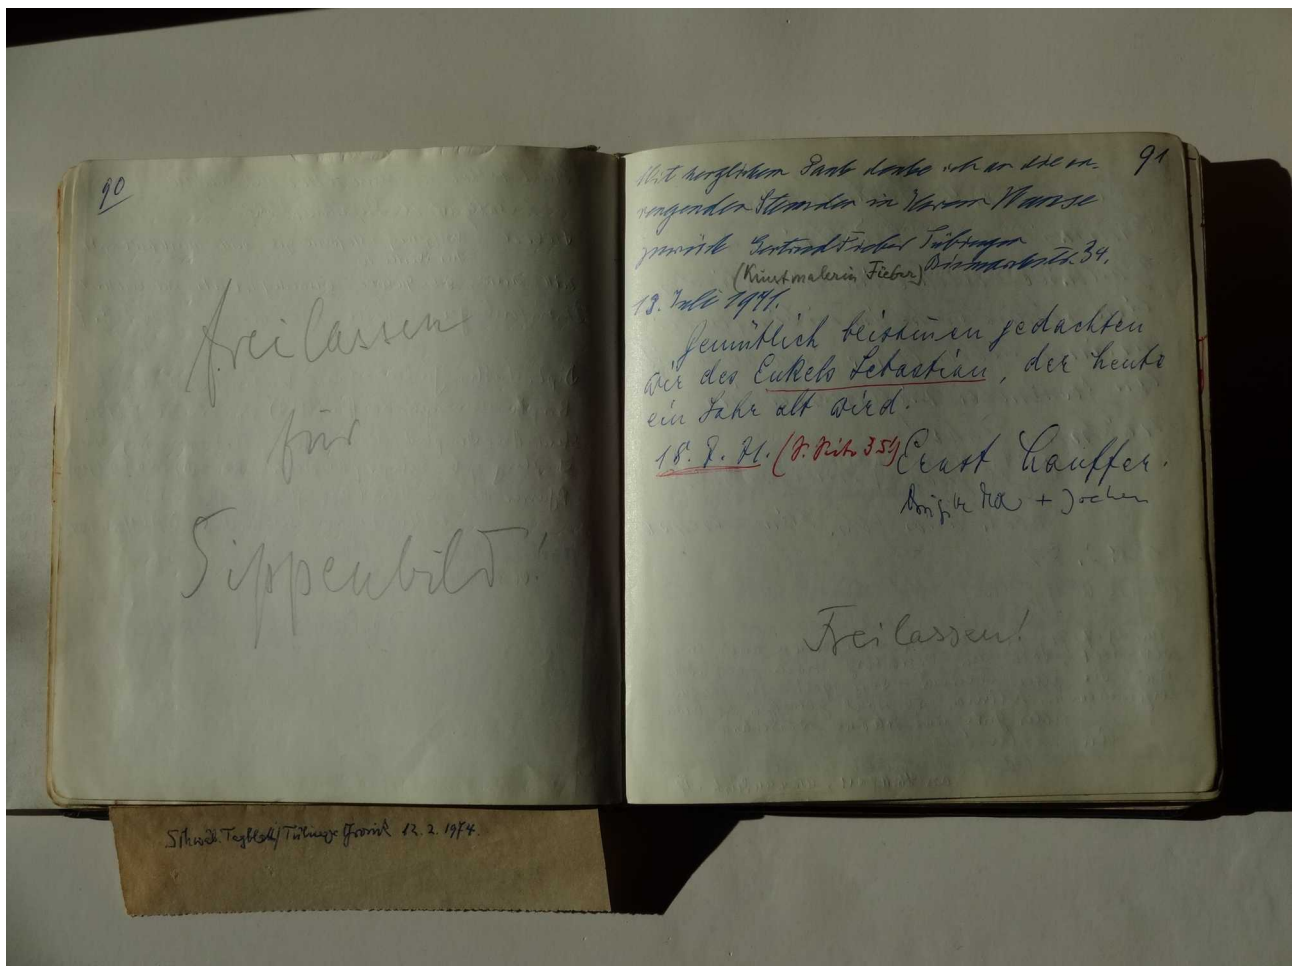 90
freilassen
für
Sippenbild!
91
Mit herzlichem Dank denke ich an die an-
regenden Stunden in Ihrem Hause
zurück Gertrud Fieber Tübingen
Bismarckstr. 34.
(Kunstmalerin Fieber)
18. Juli 1971.
Gemütlich beisamen gedachten
wir des Enkels Sebastian, der heute
ein Jahr alt wird.
18. 7. 71. (S. Seite 354) Ernst Lauffer.
+ Jochen
Freilassen!
Schwäb. Tagblatt/Tübinger Chronik 12. 2. 1974.